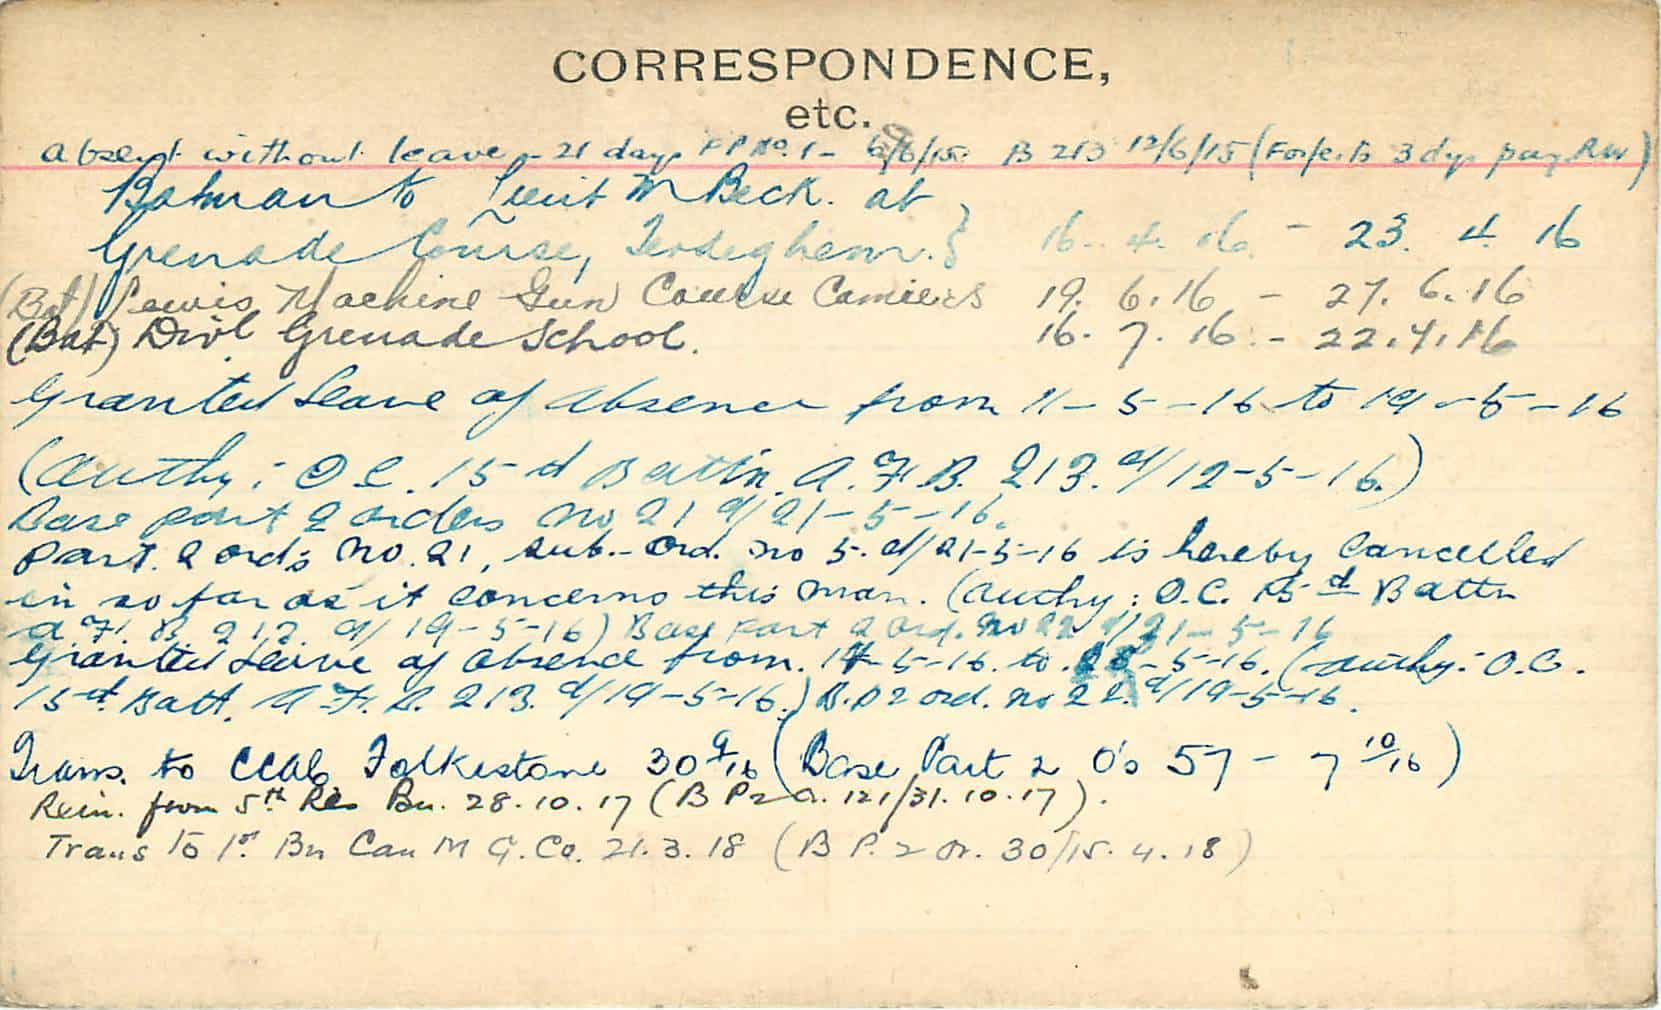 CORRESPONDENCE,
etc.
Absent without leave - 21 days FP No. 1 - 6/6/15 B 213 12/6/15 (Forfeits 3 dys pay RW)
Batman to Lieut M Beck. at
Grenade Course, Terdeghem. } 16. 4. 16 - 23. 4. 16
(Bat) Lewis Machine Gun Course Camiers 19. 6. 16 - 27. 6. 16
(Bat) Divl Grenade School. 16. 7. 16. - 22. 7. 16
Granted Leave of Absence from 11-5-16 to 19-5-16
(Authy: O.C. 15th Battn. A.F.B. 213. d/12-5-16.)
Base part 2 orders No 21 d/21-5-16.
Part. 2 ords No. 21, sub.-Ord. no 5. d/21-5-16 is hereby Cancelled
in so far as it concerns this man. (Authy: O.C. 15th Battn
A.F.B. 213. d/19-5-16) Base Part 2 Ord. No 22 d/21-5-16
Granted Leave of absence from. 17-5-16. to -5-16. (Authy:- O.C.
15th Batt. A.F.B. 213. d/19-5-16.) B.P 2 ord. No 22. d/19-5-16.
Trans. to CCAC Folkestone 30 9/16 (Base Part 2 O's 57 - 7 10/16)
Rein. from 5th Res Bn. 28.10.17 (B P 2 O. 121/31.10.17).
Trans to 1st Bn Can M G. Co. 21.3.18 (B P. 2 Or. 30/15.4.18)